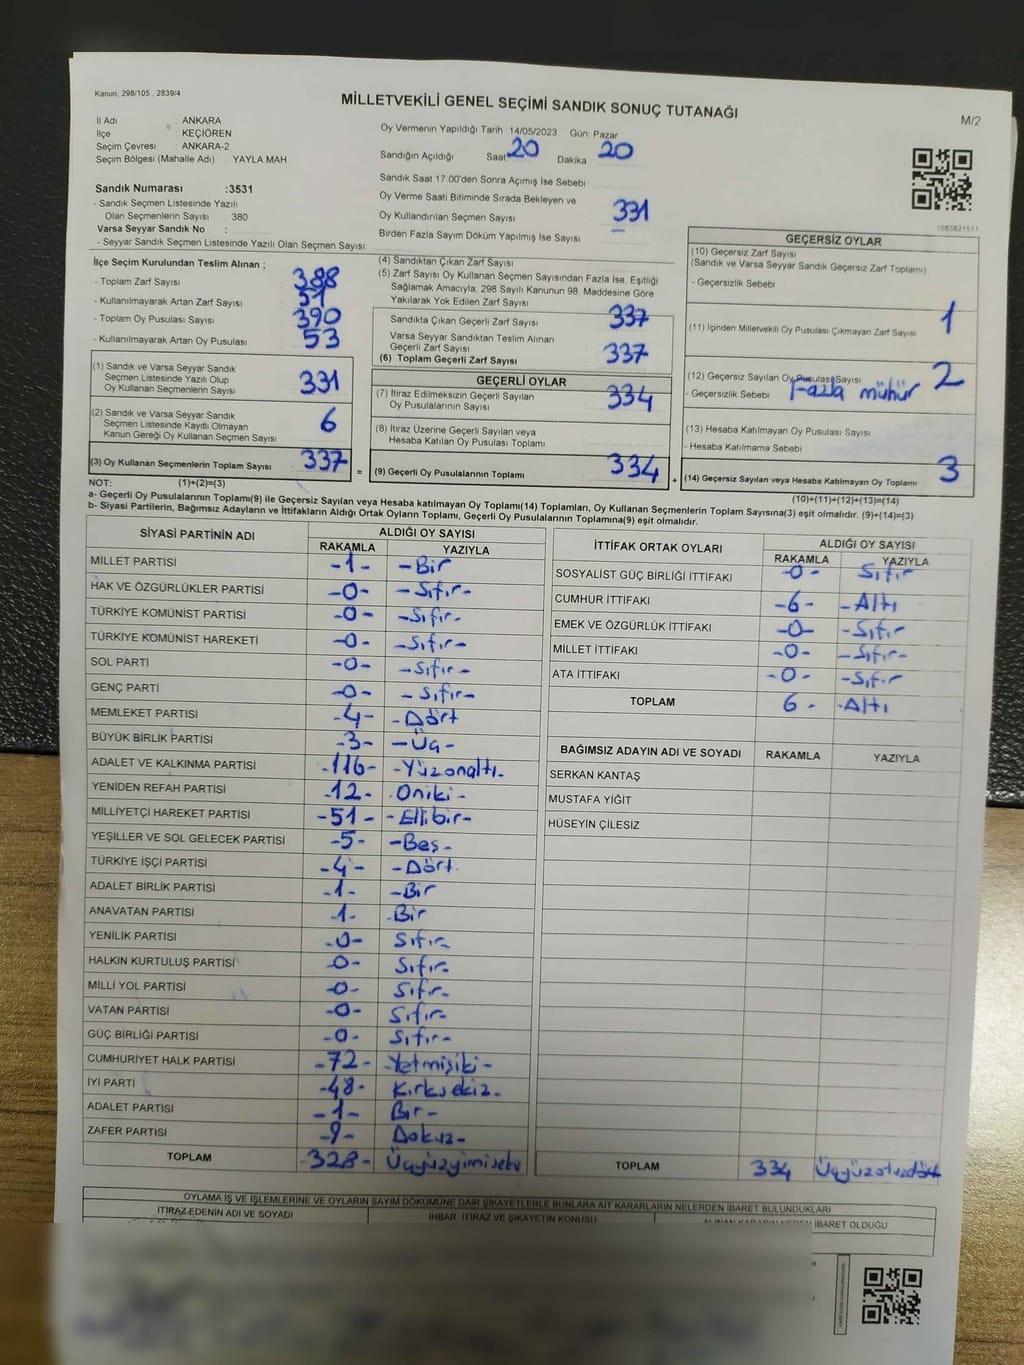 Kanun: 298/105 , 2839/4
MİLLETVEKİLİ GENEL SEÇİMİ SANDIK SONUÇ TUTANAĞI
M/2
İl Adı : ANKARA
İlçe : KEÇİÖREN
Seçim Çevresi : ANKARA-2
Seçim Bölgesi (Mahalle Adı) : YAYLA MAH.
Sandık Numarası :3531
- Sandık Seçmen Listesinde Yazılı
Olan Seçmenlerin Sayısı : 380
Varsa Seyyar Sandık No :
- Seyyar Sandık Seçmen Listesinde Yazılı Olan Seçmen Sayısı:
Oy Vermenin Yapıldığı Tarih :14/05/2023 Gün: Pazar
Sandığın Açıldığı Saat 20 Dakika 20
Sandık Saat 17:00'den Sonra Açımış İse Sebebi:
Oy Verme Saati Bitiminde Sırada Bekleyen ve
Oy Kullandırılan Seçmen Sayısı 331
Birden Fazla Sayım Döküm Yapılmış İse Sayısı –
1083821511
İlçe Seçim Kurulundan Teslim Alınan ;
- Toplam Zarf Sayısı 388
- Kullanılmayarak Artan Zarf Sayısı 51
- Toplam Oy Pusulası Sayısı 390
- Kullanılmayarak Artan Oy Pusulası 53
(1) Sandık ve Varsa Seyyar Sandık
Seçmen Listesinde Yazılı Olup
Oy Kullanan Seçmenlerin Sayısı 331
(2) Sandık ve Varsa Seyyar Sandık
Seçmen Listesinde Kayıtlı Olmayan
Kanun Gereği Oy Kullanan Seçmen Sayısı 6
(3) Oy Kullanan Seçmenlerin Toplam Sayısı 337
(4) Sandıktan Çıkan Zarf Sayısı
(5) Zarf Sayısı Oy Kullanan Seçmen Sayısından Fazla İse, Eşitliği
Sağlamak Amacıyla; 298 Sayılı Kanunun 98. Maddesine Göre
Yakılarak Yok Edilen Zarf Sayısı
Sandıkta Çıkan Geçerli Zarf Sayısı 337
Varsa Seyyar Sandıktan Teslim Alınan
Geçerli Zarf Sayısı
(6) Toplam Geçerli Zarf Sayısı 337
GEÇERLİ OYLAR
(7) İtiraz Edilmeksizin Geçerli Sayılan
Oy Pusulalarının Sayısı 334
(8) İtiraz Üzerine Geçerli Sayılan veya
Hesaba Katılan Oy Pusulası Toplamı
= (9) Geçerli Oy Pusulalarının Toplamı 334
GEÇERSİZ OYLAR
(10) Geçersiz Zarf Sayısı
(Sandık ve Varsa Seyyar Sandık Geçersiz Zarf Toplamı)
- Geçersizlik Sebebi
(11) İçinden Milletvekili Oy Pusulası Çıkmayan Zarf Sayısı 1
(12) Geçersiz Sayılan Oy Pusulası Sayısı 2
- Geçersizlik Sebebi Fazla mühür
(13) Hesaba Katılmayan Oy Pusulası Sayısı
- Hesaba Katılmama Sebebi
+ (14) Geçersiz Sayılan veya Hesaba Katılmayan Oy Toplamı 3
NOT: (1)+(2)=(3)
(10)+(11)+(12)+(13)=(14)
a- Geçerli Oy Pusulalarının Toplamı(9) ile Geçersiz Sayılan veya Hesaba katılmayan Oy Toplamı(14) Toplamları, Oy Kullanan Seçmenlerin Toplam Sayısına(3) eşit olmalıdır. (9)+(14)=(3)
b- Siyasi Partilerin, Bağımsız Adayların ve İttifakların Aldığı Ortak Oyların Toplamı, Geçerli Oy Pusulalarının Toplamına(9) eşit olmalıdır.
SİYASİ PARTİNİN ADI ALDIĞI OY SAYISI
RAKAMLA YAZIYLA
MİLLET PARTİSİ -1- -Bir
HAK VE ÖZGÜRLÜKLER PARTİSİ -0- -Sıfır-
TÜRKİYE KOMÜNİST PARTİSİ -0- -Sıfır-
TÜRKİYE KOMÜNİST HAREKETİ -0- -Sıfır-
SOL PARTİ -0- -Sıfır-
GENÇ PARTİ -0- -Sıfır-
MEMLEKET PARTİSİ -4- -Dört
BÜYÜK BİRLİK PARTİSİ -3- -Üç-
ADALET VE KALKINMA PARTİSİ -116- -Yüzonaltı-
YENİDEN REFAH PARTİSİ -12- Oniki-
MİLLİYETÇİ HAREKET PARTİSİ -51- -Ellibir-
YEŞİLLER VE SOL GELECEK PARTİSİ -5- -Beş-
TÜRKİYE İŞÇİ PARTİSİ -4- -Dört.
ADALET BİRLİK PARTİSİ -1- -Bir
ANAVATAN PARTİSİ -1- Bir
YENİLİK PARTİSİ -0- Sıfır-
HALKIN KURTULUŞ PARTİSİ -0- Sıfır-
MİLLİ YOL PARTİSİ -0- Sıfır-
VATAN PARTİSİ -0- Sıfır-
GÜÇ BİRLİĞİ PARTİSİ -0- Sıfır-
CUMHURİYET HALK PARTİSİ -72- -Yetmişiki-
İYİ PARTİ -48- Kırksekiz-
ADALET PARTİSİ -1- Bir-
ZAFER PARTİSİ -9- Dokuz-
TOPLAM -328-
İTTİFAK ORTAK OYLARI ALDIĞI OY SAYISI
RAKAMLA YAZIYLA
SOSYALİST GÜÇ BİRLİĞİ İTTİFAKI -0- Sıfır
CUMHUR İTTİFAKI -6- -Altı
EMEK VE ÖZGÜRLÜK İTTİFAKI -0- -Sıfır
MİLLET İTTİFAKI -0- -Sıfır-
ATA İTTİFAKI -0- -Sıfır
TOPLAM 6- -Altı
BAĞIMSIZ ADAYIN ADI VE SOYADI RAKAMLA YAZIYLA
SERKAN KANTAŞ
MUSTAFA YİĞİT
HÜSEYİN ÇİLESİZ
TOPLAM 334 Üçyüzotuzdört
OYLAMA İŞ VE İŞLEMLERİNE VE OYLARIN SAYIM DÖKÜMÜNE DAİR ŞİKAYETLERLE BUNLARA AİT KARARLARIN NELERDEN İBARET BULUNDUKLARI
İTİRAZ EDENİN ADI VE SOYADI İHBAR, İTİRAZ VE ŞİKAYETİN KONUSU ALINAN KARARIN NEDEN İBARET OLDUĞU